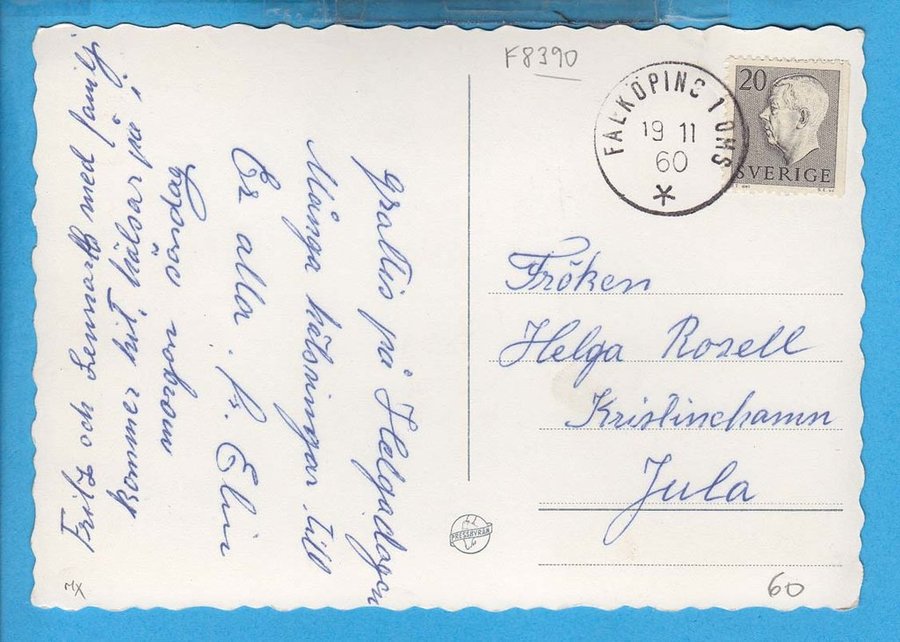 F8390
FALKÖPING 1 ÖMS
19 11
60
20
SVERIGE
Fröken
Helga Rosell
Kristinehamn
Jula
PRESSBYRÅN
60
Grattis på Helgadagen
Många hälsningar till
Er alla. fr. Elin
Fritz och Lennarts med familj
kommer hit, hälsar på,
morgon söndag